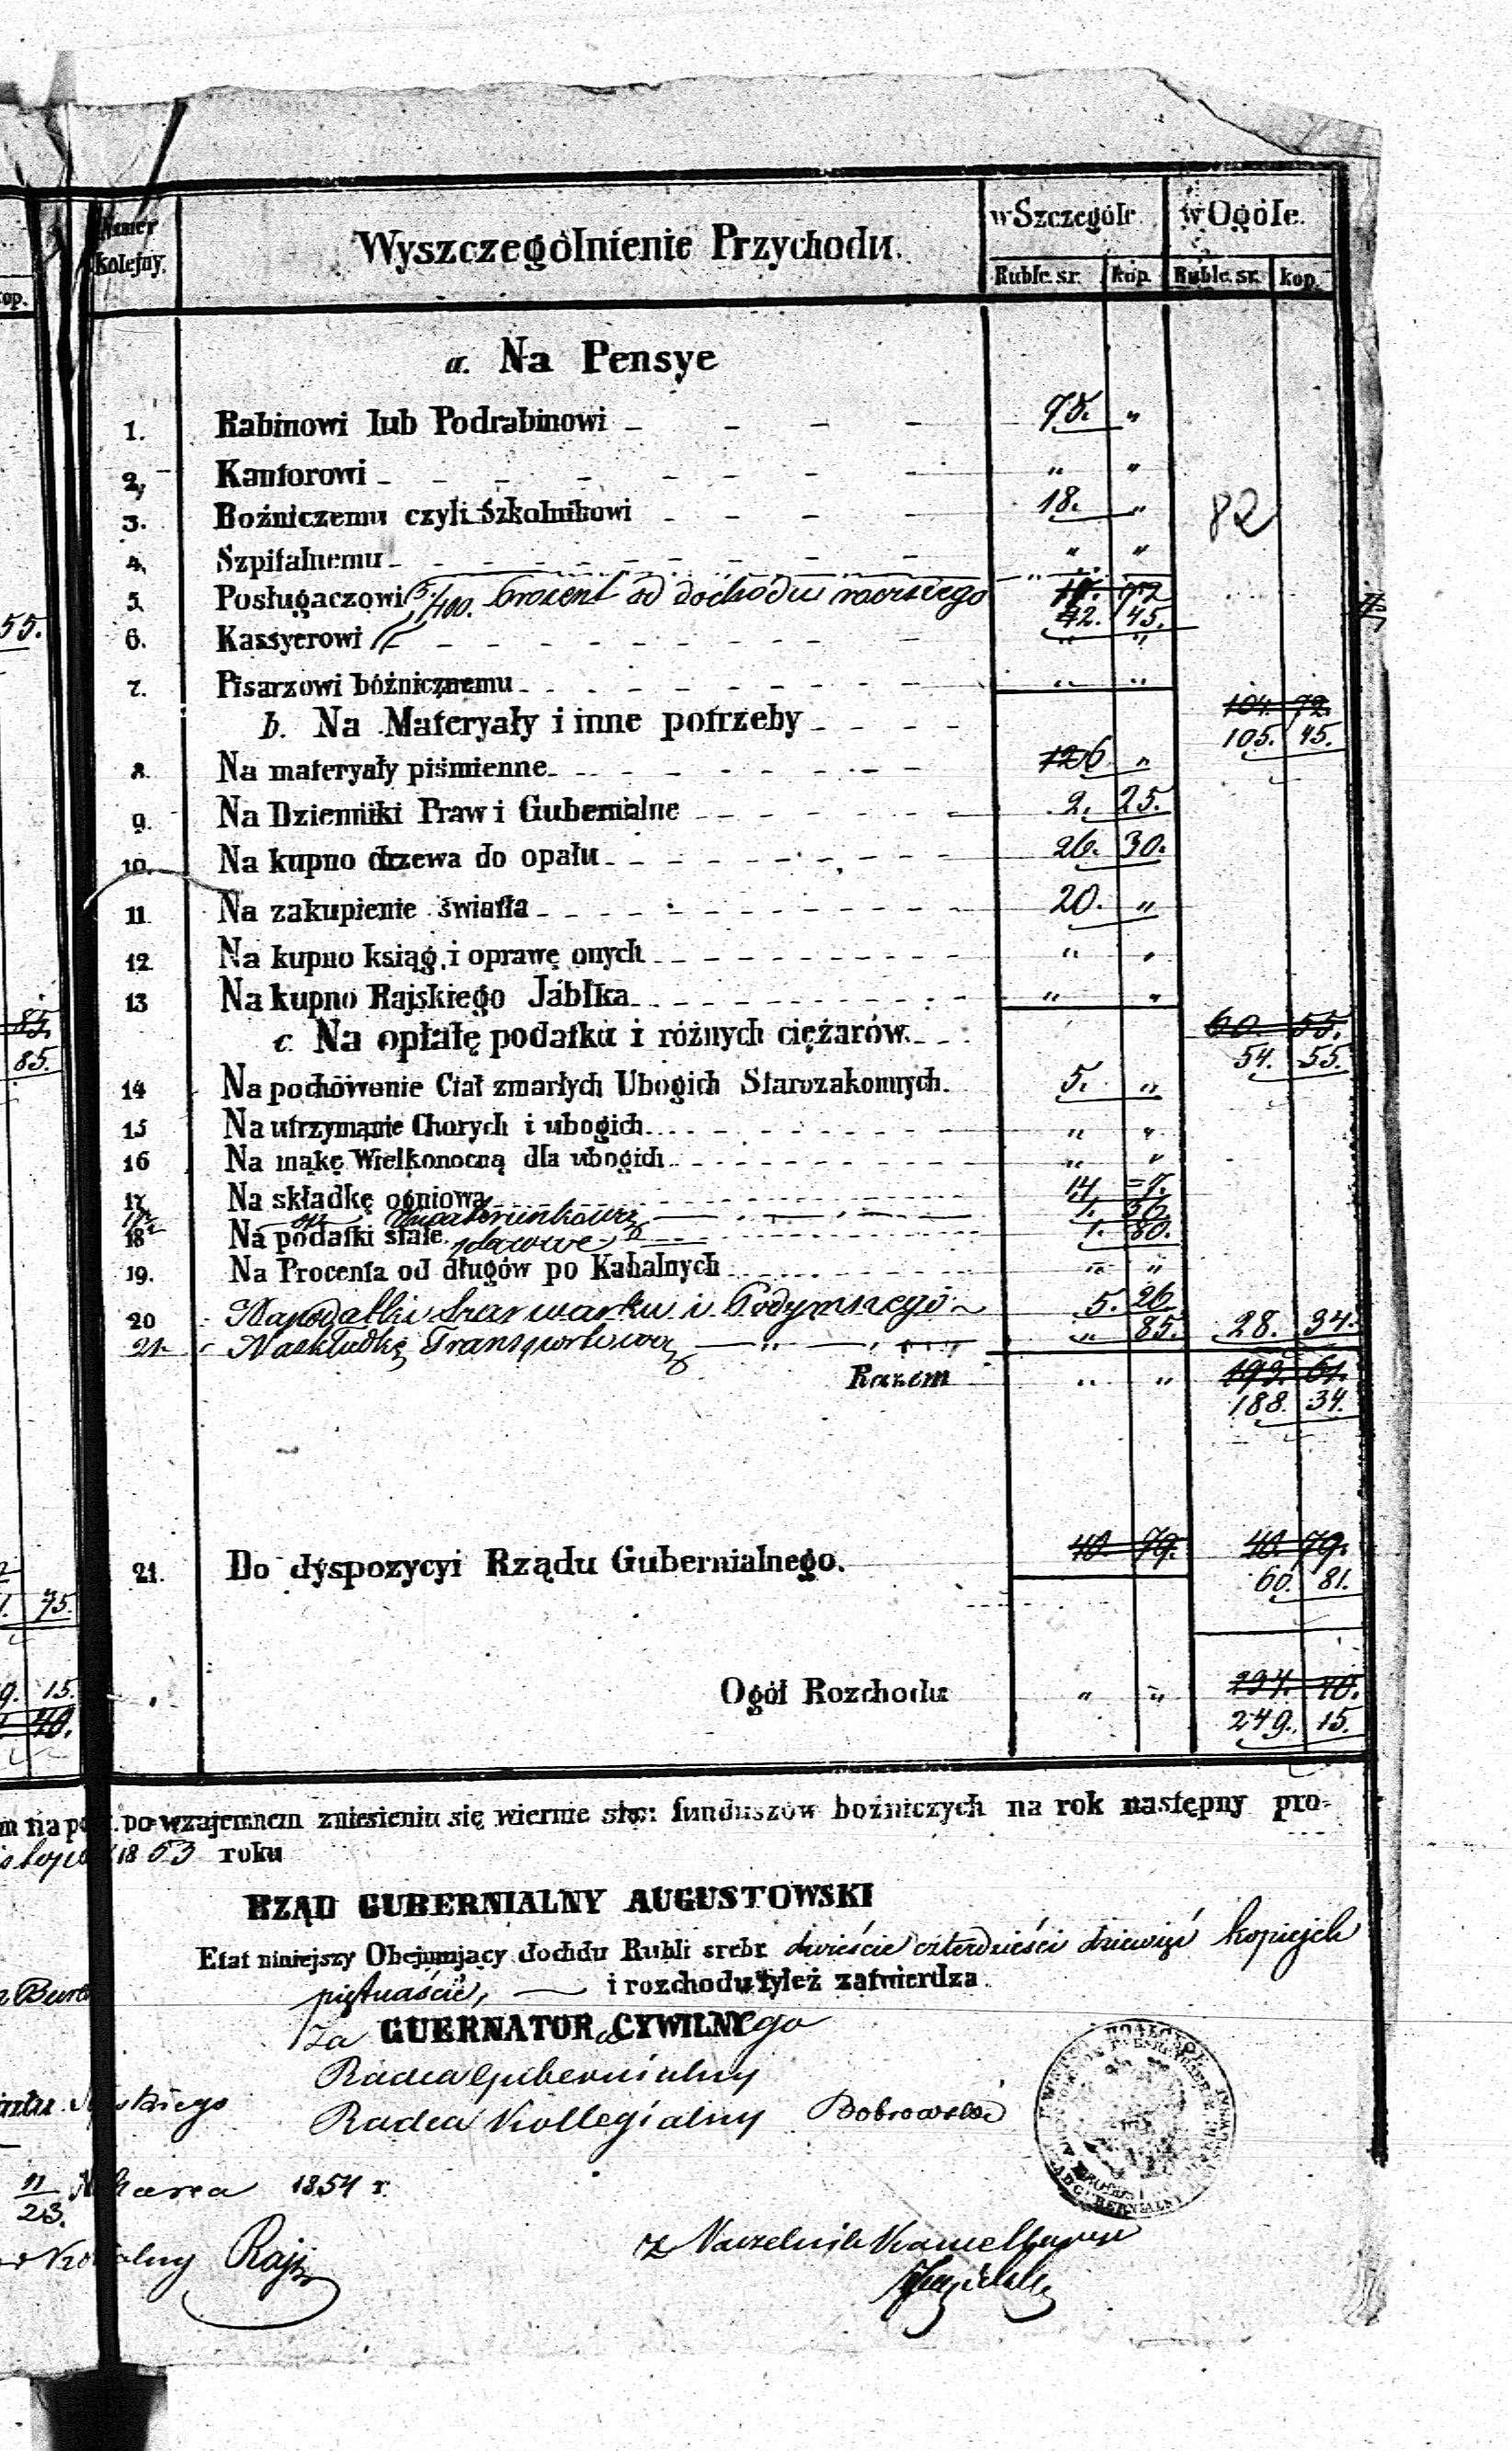 Numer kolejny. Wyszczególnienie Przychodu. w Szczególe w Ogóle.
kop. Ruble sr. kop. Ruble sr. kop.
a. Na Pensye
1. Rabinowi lub Podrabinowi 75. "
2, Kantorowi " "
3. Boźniczemu czyli Szkolnikowi 18. "
82
4, Szpitalnemu " "
5, Posługaczowi 5/100. procent od dochodu
55. 12. 45.
6. Kassyerowi " "
7. Pisarzowi bóżnicznemu " "
104. 72.
b. Na Materyały i inne potrzeby 105. 45.
8. Na materyały piśmienne 12 6 "
9. Na Dzienniki Praw i Gubernialne 2. 25.
10. Na kupno drzewa do opału 26. 30.
11. Na zakupienie światła 20. "
12 Na kupno ksiąg, i oprawę onych " "
13 Na kupno Rajskiego Jabłka " "
85. 60. 55.
c. Na opłatę podatku i różnych ciężarów.
85. 54. 55.
14 Na pochówanie Ciał zmarłych Ubogich Starozakonnych. 5. "
15 Na utrzymanie Chorych i ubogich " "
16 Na mąkę Wielkonocną dla ubogich " "
17 Na składkę ogniową 14
18 Na podatki stałe 1. 80.
19. Na Procenta od długów po Kahalnych " "
20 Na podatki Szarwarku i Podymnego 5. 26
21. Na składkę Transportową " 85. 28. 34.
Razem " " 193. 61.
188. 34.
21. Do dyspozycyi Rządu Gubernialnego. 40. 79. 40. 79.
75. 60. 81.
15. Ogół Rozchodu " " 234. 40.
40. 249. 15.
po wzajemnem zniesieniu się wiernie funduszów boźniczych na rok następny pro-
1853 roku
RZĄD GUBERNIALNY AUGUSTOWSKI
Etat niniejszy Obejmujący dochdu Rubli srebr dwieście czterdzieści dziewięć kopiejek
piętnaście, — i rozchodu tyleż zatwierdza.
Za GUERNATORA CYWILNYgo
Radca Gubernialny
Radca Kollegialny Dobrowolski
11/23. Marca 1854 r.
Z Naczelnik Kancellaryi